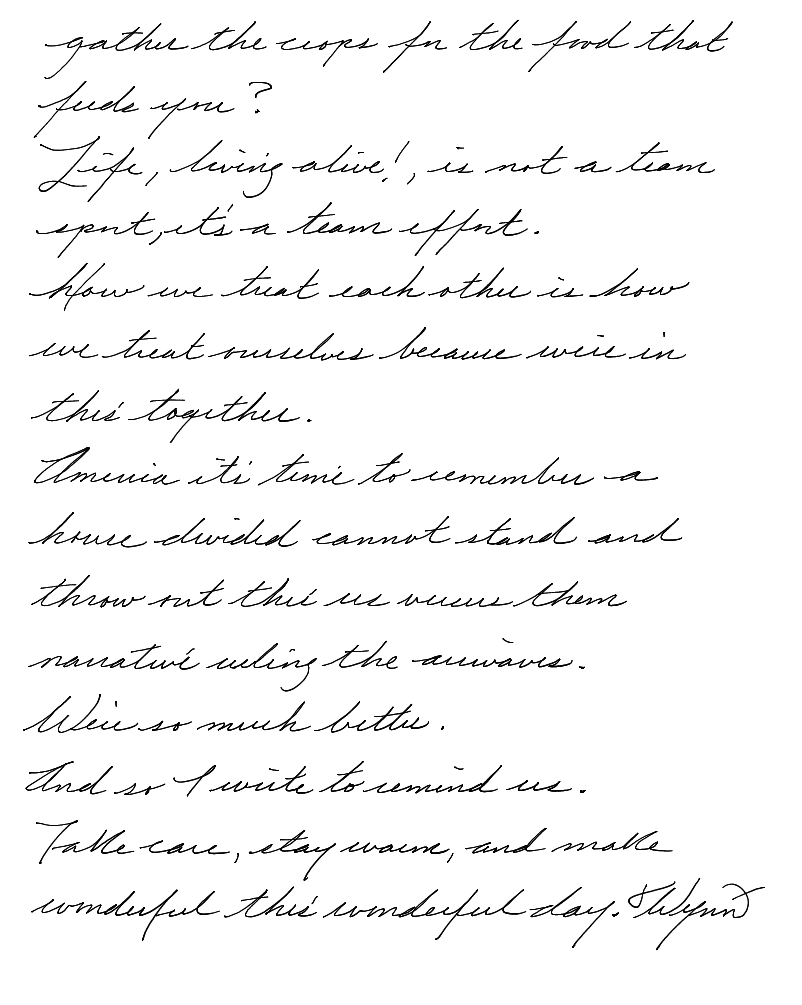 gather the crops for the food that
feeds you?
Life, living alive!, is not a team
sport, it's a team effort.
How we treat each other is how
we treat ourselves because we're in
this together.
America it's time to remember a
house divided cannot stand and
throw out this us versus them
narrative ruling the airwaves.
We're so much better.
And so I write to remind us.
Take care, stay warm, and make
wonderful this wonderful day. Wynn